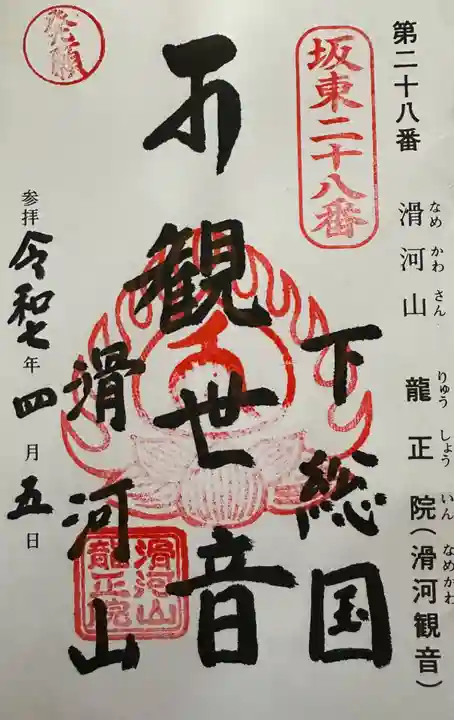 第二十八番 滑河山 龍正院(滑河観音)
なめ かわ さん りゅう しょう いん なめかわ
坂東二十八番
下総国
観世音
滑河山
発願
参拝 令和七年四月五日
滑河山
龍正院